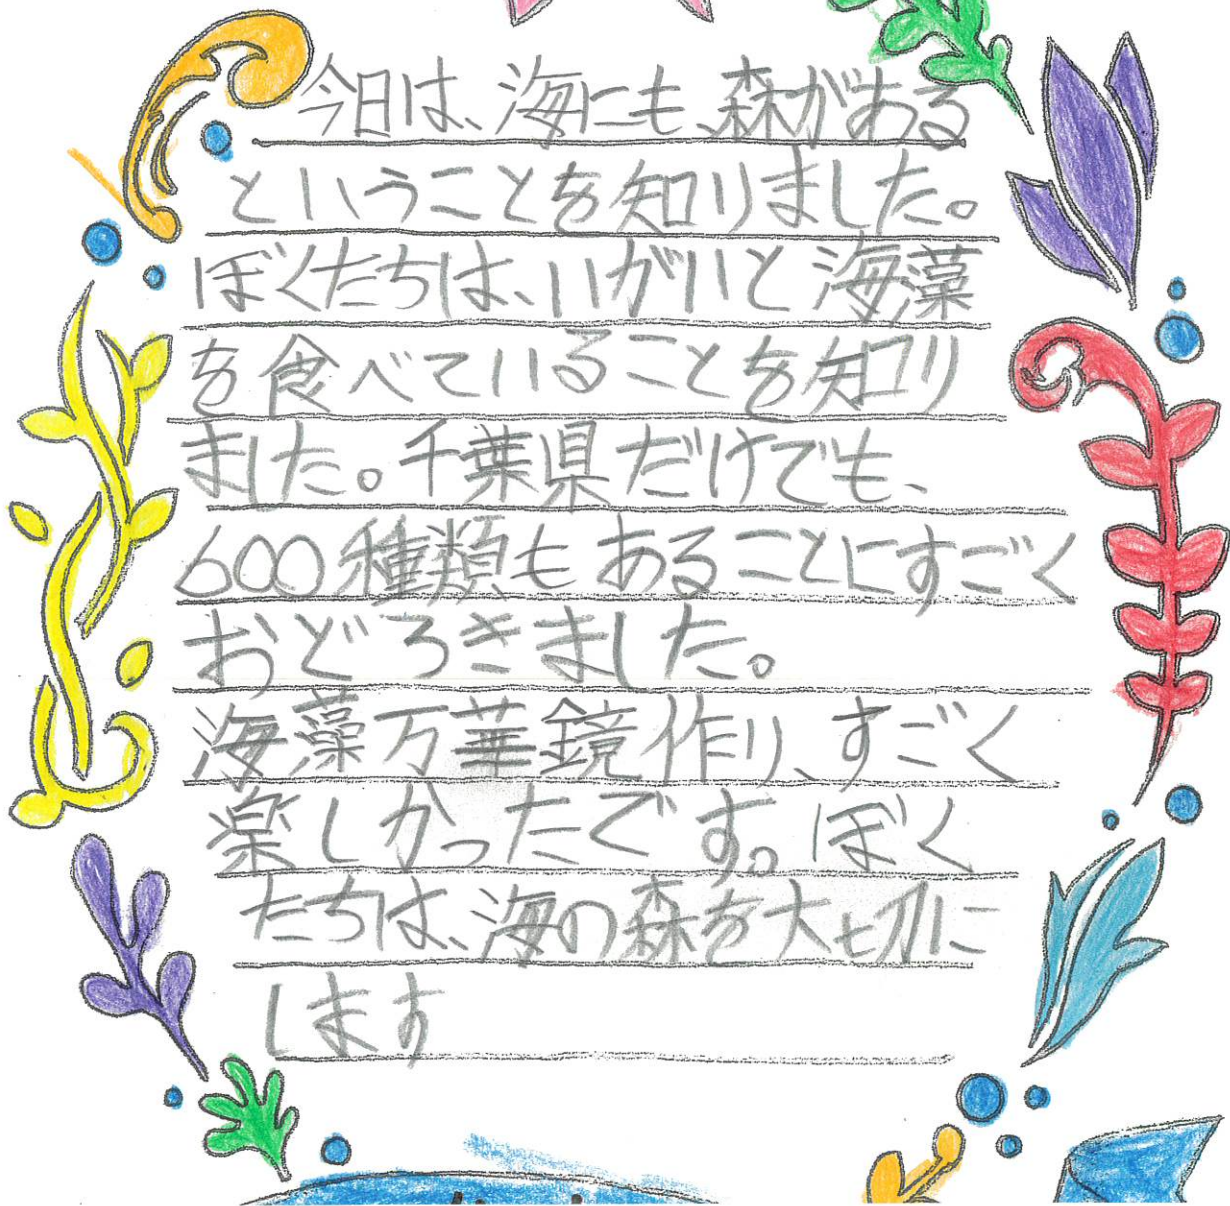 今日は、海にも、森がある
ということを知りました。
ぼくたちは、いがいと海藻
を食べていることを知り
ました。千葉県だけでも、
600種類もあることにすごく
おどろきました。
海藻万華鏡作り、すごく
楽しかったです。ぼく
たちは、海の森を大切に
します